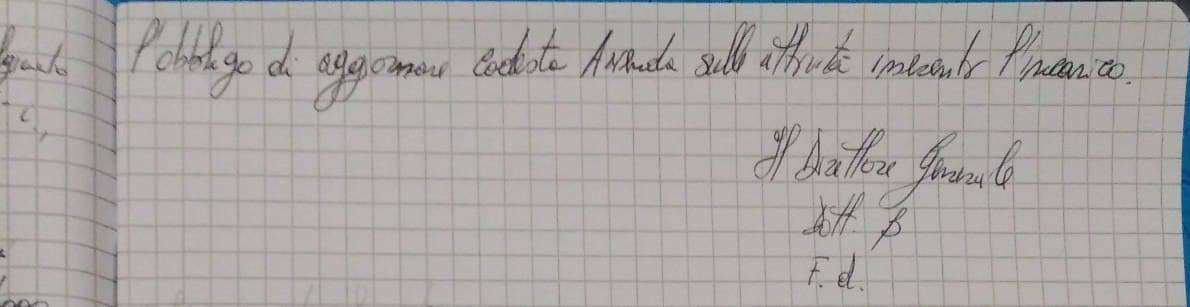 l'obbligo di aggiornare codesta Azienda sulle attività inerenti l'incarico.
Il Direttore Generale
Dott. B
F. d.